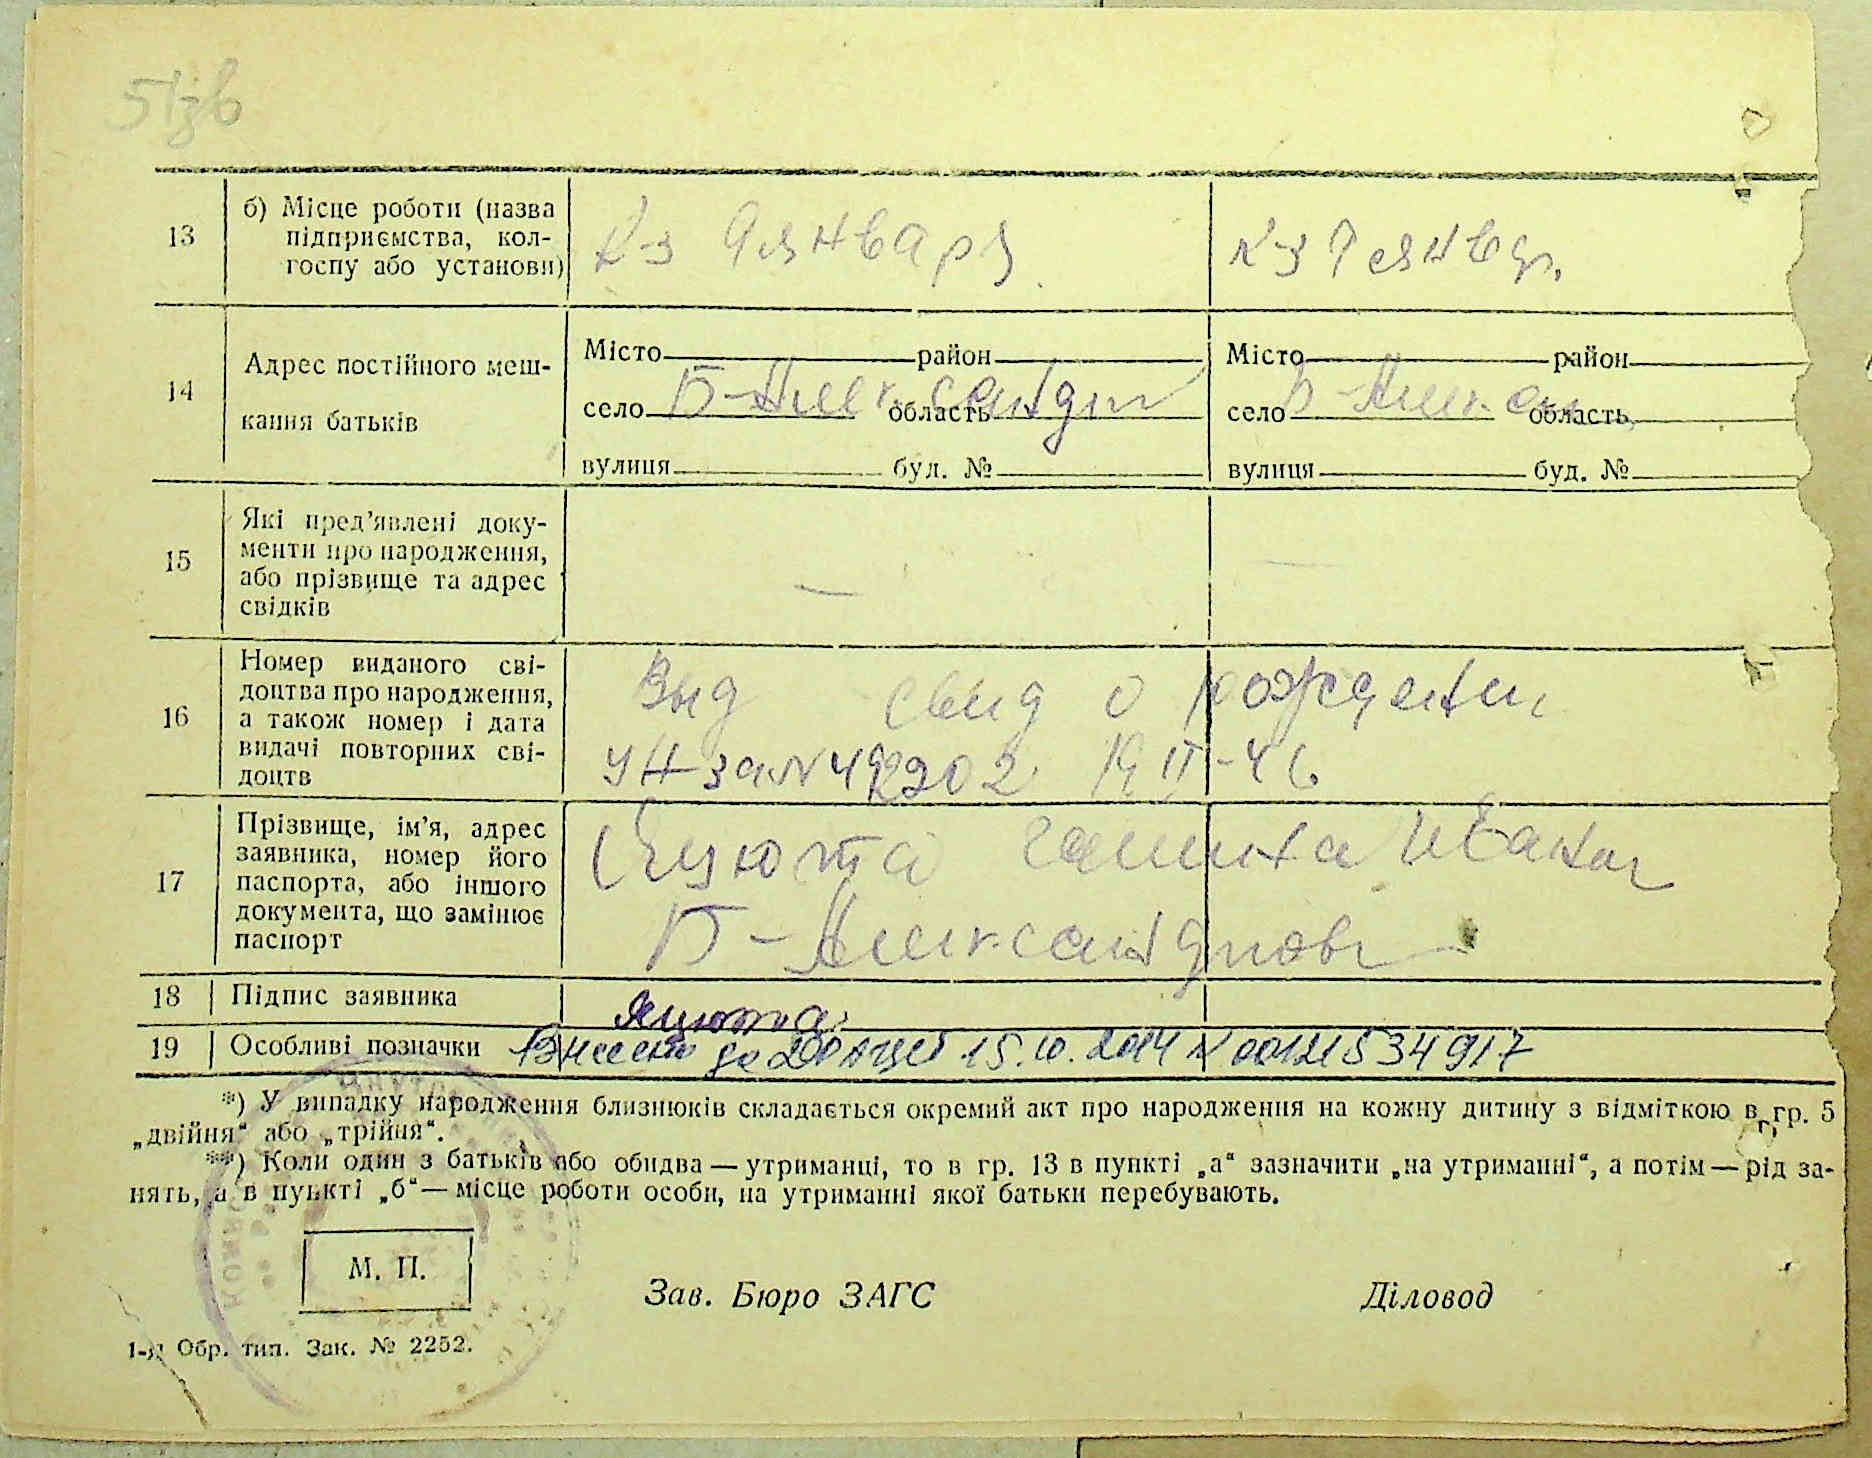 51зв
13
б) Місце роботи (назва
підприємства, кол-
госпу або установи)
К-з 9 января
к-з 9 январ.
14
Адрес постійного меш-
кання батьків
Місто район
село Б-Александр область
вулиця буд. №
Місто район
село Б-Алексан область
вулиця буд. №
15
Які пред’явлені доку-
менти про народження,
або прізвище та адрес
свідків
—
16
Номер виданого сві-
доцтва про народження,
а також номер і дата
видачі повторних сві-
доцтв
Выд свид о рождении
УН за № II-46
17
Прізвище, ім’я, адрес
заявника, номер його
паспорта, або іншого
документа, що замінює
паспорт
Яцюта Галина Иван
Б-Александров
18 Підпис заявника Яцюта
19 Особливі позначки Внесено до ДРАЦСГ 15.10.2014 № 00121534917
*) У випадку народження близнюків складається окремий акт про народження на кожну дитину з відміткою в гр. 5
„двійня“ або „трійня“.
**) Коли один з батьків або обидва — утриманці, то в гр. 13 в пункті „а“ зазначити „на утриманні“, а потім — рід за-
нять, а в пункті „б“ — місце роботи особи, на утриманні якої батьки перебувають.
М. П.
Зав. Бюро ЗАГС
Діловод
1-а Обр. тип. Зак. № 2252.